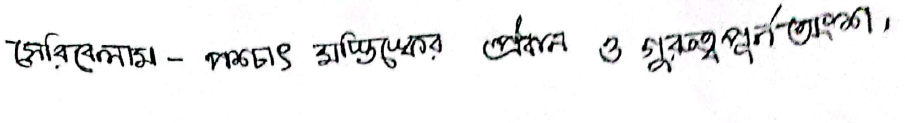 সেরিবেলাম - পশ্চাৎ মস্তিষ্কের প্রধান ও গুরুত্বপূর্ন অংশ।